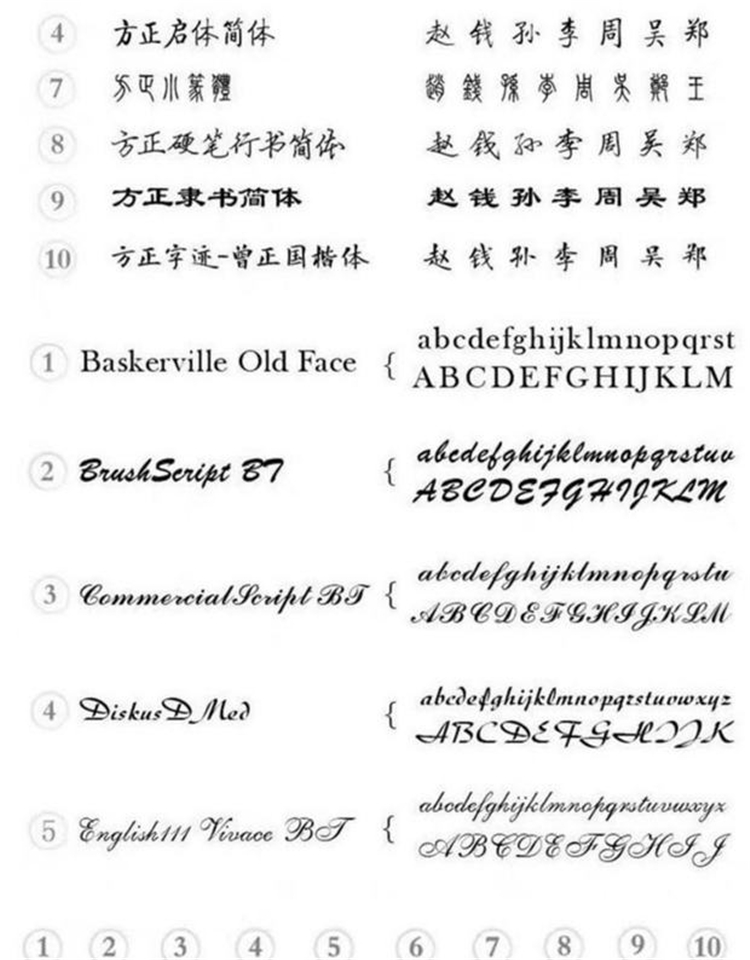 4 方正启体简体 赵 钱 孙 李 周 吴 郑
7 方正小篆體 趙 錢 孫 李 周 吳 鄭 王
8 方正硬笔行书简体 赵 钱 孙 李 周 吴 郑
9 方正隶书简体 赵 钱 孙 李 周 吴 郑
10 方正字迹-曾正国楷体 赵 钱 孙 李 周 吴 郑
abcdefghijklmnopqrst
1 Baskerville Old Face {
ABCDEFGHIJKLM
abcdefghijklmnopqrstuv
2 BrushScript BT {
ABCDEFGHIJKLM
abcdefghijklmnopqrstu
3 CommercialScript BT {
ABCDEFGHIJKLM
abcdefghijklmnopqrstuvwxyz
4 DiskusD Med {
ABCDEFGHIJK
abcdefghijklmnopqrstuvwxyz
5 English111 Vivace BT {
ABCDEFGHIJ
1 2 3 4 5 6 7 8 9 10